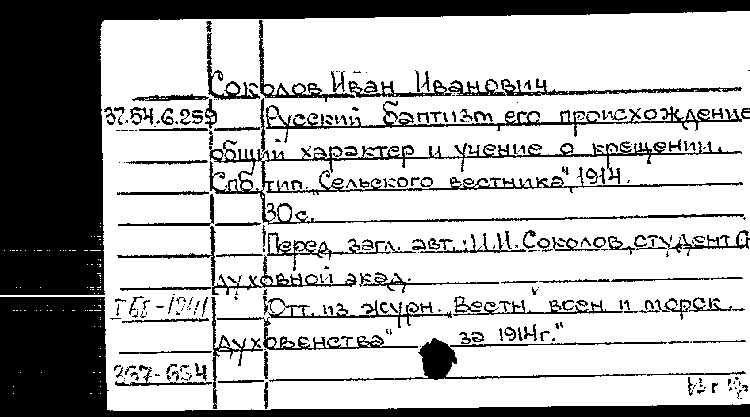 Соколов, Иван Иванович.
37.54.6.259 Русский баптизм, его происхождение
общий характер и учение о крещении.
Спб. тип. "Сельского вестника", 1914.
30с.
Перед загл. авт.: И.И.Соколов, студент
духовной акад.
Отт. из журн. "Вестн. воен и морск.
духовенства" за 1914г."